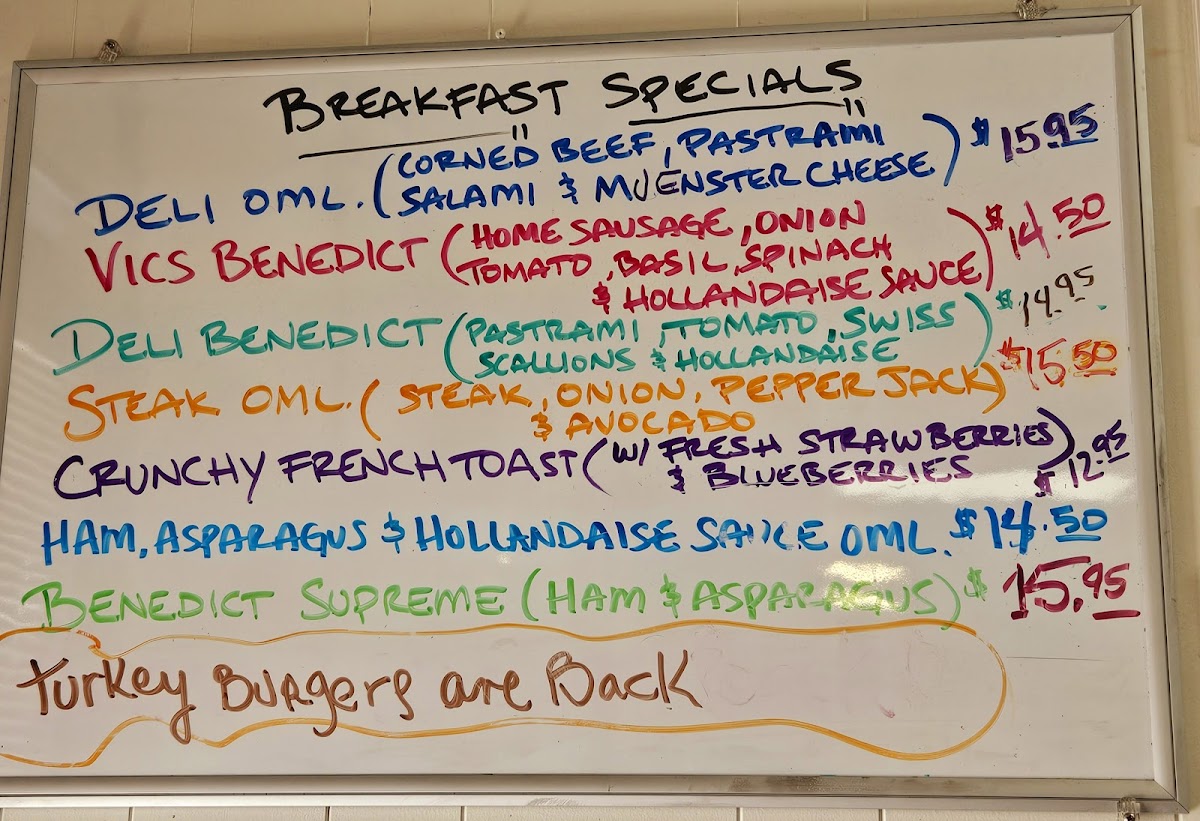 BREAKFAST SPECIALS
DELI OML. (CORNED BEEF, PASTRAMI
SALAMI & MUENSTER CHEESE) $15.95
VICS BENEDICT (HOME SAUSAGE, ONION
TOMATO, BASIL, SPINACH
& HOLLANDAISE SAUCE) $14.50
DELI BENEDICT (PASTRAMI, TOMATO, SWISS
SCALLIONS & HOLLANDAISE) $14.95
STEAK OML. (STEAK, ONION, PEPPER JACK) $15.50
& AVOCADO
CRUNCHY FRENCH TOAST (W/ FRESH STRAWBERRIES
& BLUEBERRIES) $12.95
HAM, ASPARAGUS & HOLLANDAISE SAUCE OML. $14.50
BENEDICT SUPREME (HAM & ASPARAGUS) $15.95
Turkey Burgers are Back